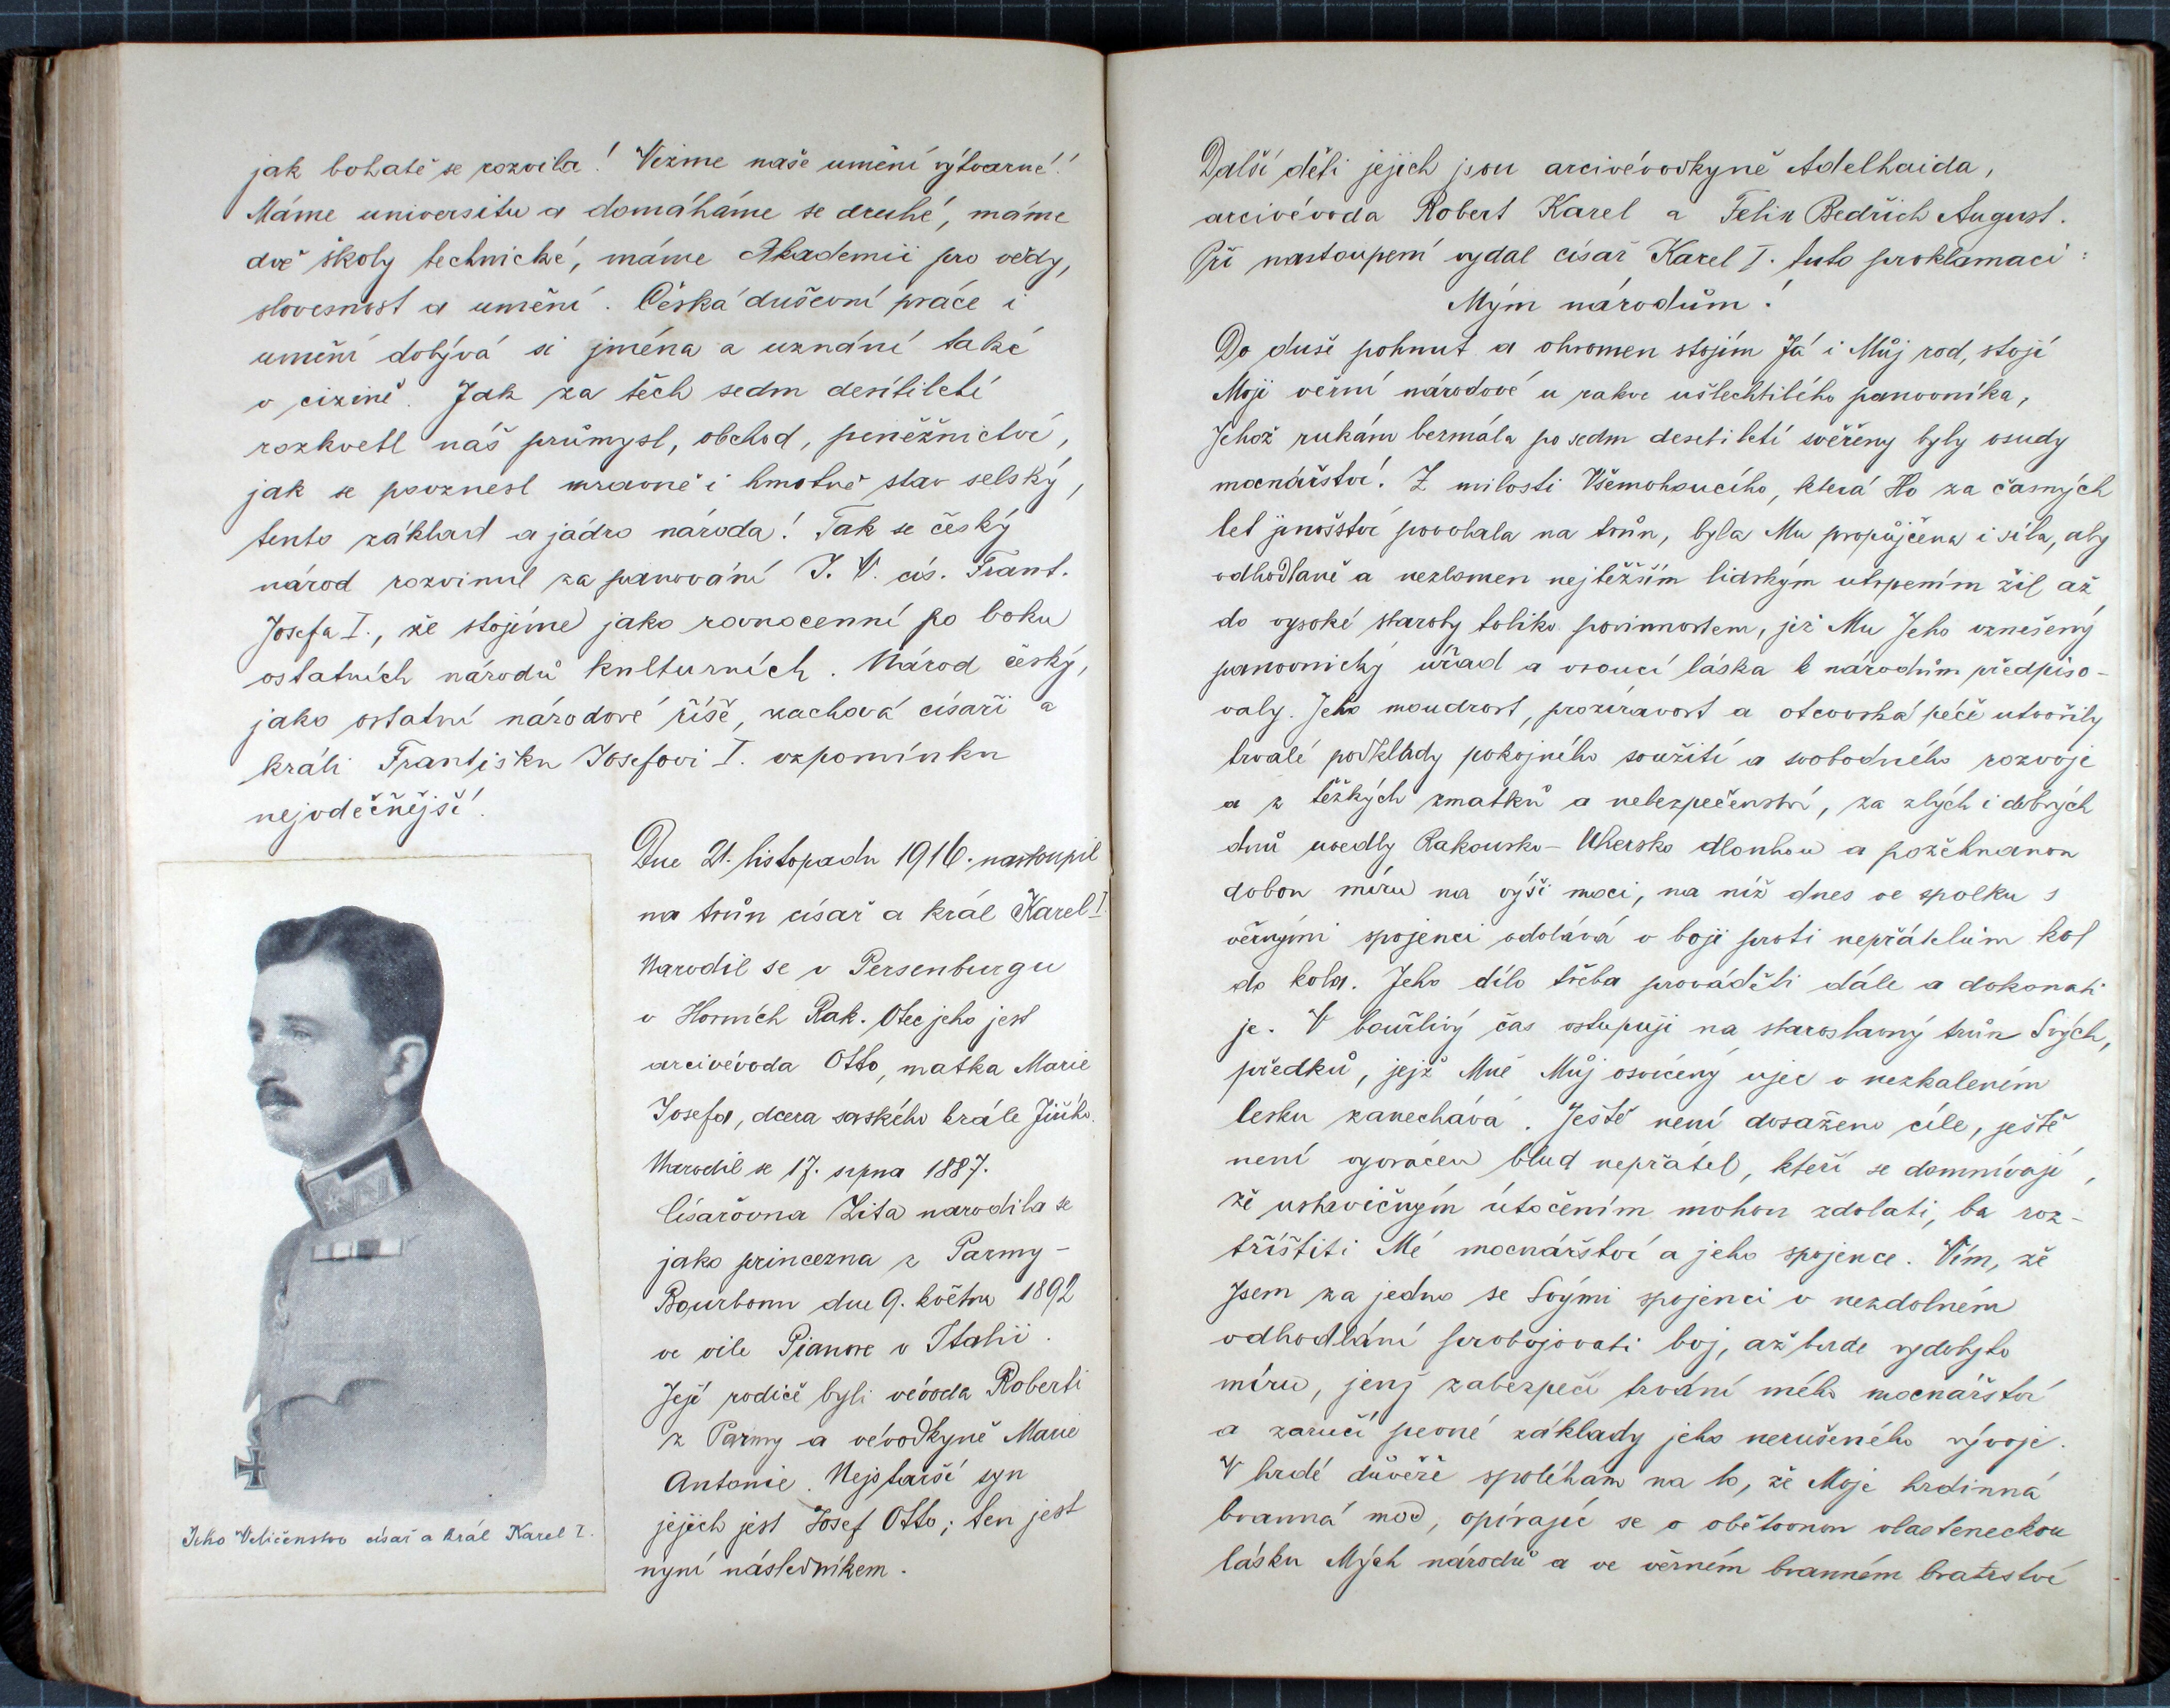 jak bohatě se rozvila! Vezme naše umění výtvarné!
Máme universitu a domáháme se druhé, máme
dvě školy technické, máme Akademii pro vědy,
slovesnost a umění. Česká duševní práce i
umění dobývá si jména a uznání také
v cizině. Jak za těch sedm desítiletí
rozkvetl náš průmysl, obchod, peněžnictví,
jak se povznesl mravně i hmotně stav selský,
tento základ a jádro národa! Tak se český
národ rozvinul za panování J. V. cís. Frant.
Josefa I., že stojíme jako rovnocenní po boku
ostatních národů kulturních. Národ český,
jako ostatní národové říše, zachová císaři a
králi Františku Josefovi I. vzpomínku
nejvděčnější!
Dne 21. listopadu 1916. nastoupil
na trůn císař a král Karel I.
Narodil se v Persenburgu
v Horních Rak. Otec jeho jest
arcivévoda Otto, matka Marie
Josefa, dcera saského krále Jiřího.
Narodil se 17. srpna 1887.
Císařovna Zita narodila se
jako princezna z Parmy-
Bourbonu dne 9. května 1892
ve vile Pianore v Italii.
Její rodiče byli vévoda Roberti
z Parmy a vévodkyně Marie
Antonie. Nejstarší syn
jejich jest Josef Otto; ten jest
nyní následníkem.
Jeho Veličenstvo císař a král Karel I.
Další děti jejich jsou arcivévodkyně Adelhaida,
arcivévoda Robert Karel a Felix Bedřich August.
Při nastoupení vydal císař Karel I. tuto proklamaci:
Mým národům!
Do duše pohnut a ohromen stojím Já i Můj rod, stojí
Moji věrní národové u rakve ušlechtilého panovníka,
Jehož rukám bezmála po sedm desetiletí svěřeny byly osudy
mocnářství. Z milosti Všemohoucího, která Ho za časných
let jinošství povolala na trůn, byla Mu propůjčena i síla, aby
odhodlaně a nezlomen nejtěžším lidským utrpením žil až
do vysoké staroby toliko povinnostem, jež Mu Jeho vznešený
panovnický úřad a vroucí láska k národům předpiso-
valy. Jeho moudrost, prozíravost a otcovská péče utvořily
trvalé podklady pokojného soužití a svobodného rozvoje
a z těžkých zmatků a nebezpečenství, za zlých i dobrých
dnů vedly Rakousko-Uhersko dlouhou a požehnanou
dobou míru na výši moci, na níž dnes ve spolku s
věrnými spojenci odolává v boji proti nepřátelům kol
do kola. Jeho dílo třeba prováděti dále a dokonati
je. V bouřlivý čas vstupuji na staroslavný trůn Svých,
předků, jejž Mně Můj osvícený ujec v nezkaleném
lesku zanechává. Ještě není dosaženo cíle, ještě
není vyvrácen blud nepřátel, kteří se domnívají,
že ustavičným útočením mohou zdolati, ba roz-
tříštiti Mé mocnářství a jeho spojence. Vím, že
Jsem za jedno se Svými spojenci v nezdolném
odhodlání probojovati boj, až bude vydobyto
míru, jenž zabezpečí trvání mého mocnářství
a zaručí pevné základy jeho nerušeného vývoje.
V hrdé důvěře spoléhám na to, že Moje hrdinná
branná moc, opírajíc se o obětovnou vlasteneckou
lásku Mých národů a ve věrném branném bratrství